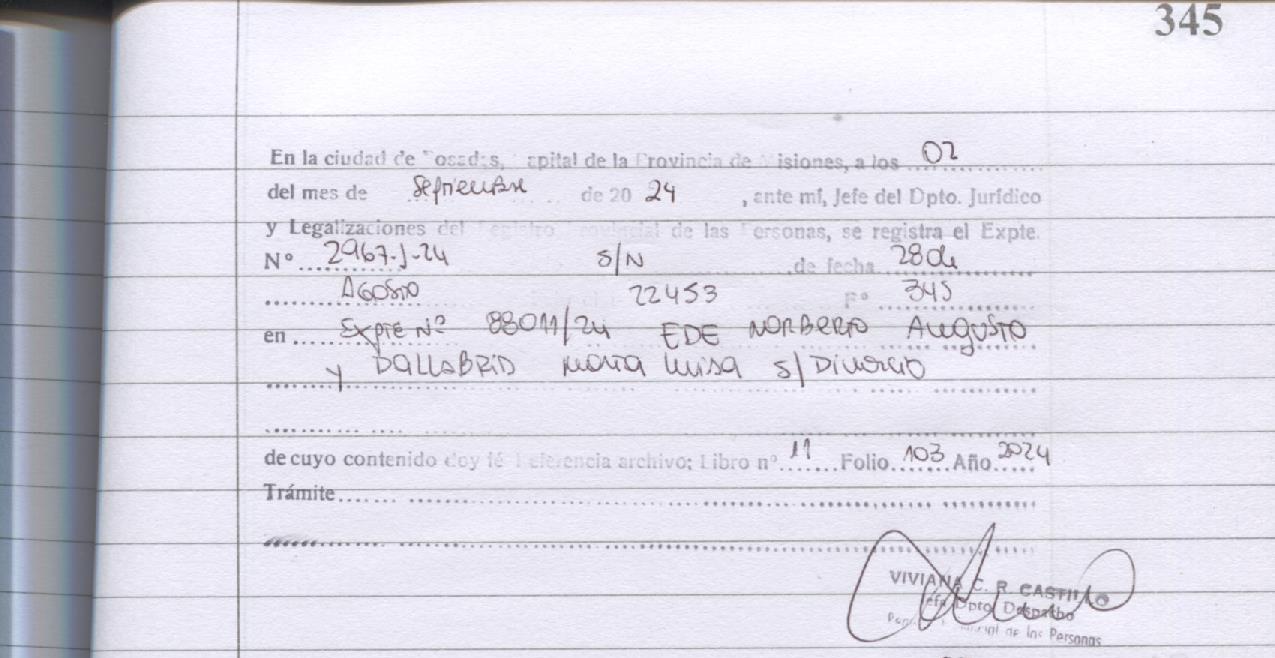 345
En la ciudad de Posadas, Capital de la Provincia de Misiones, a los 02
del mes de Septiembre de 2024, ante mí, Jefe del Dpto. Jurídico
y Legalizaciones del Registro Provincial de las Personas, se registra el Expte.
Nº 2967-J-24 S/N de fecha 28 de
Agosto 22453 Fº 345
en Expte Nº 88011/24 EDE NORBERTO AUGUSTO
y DALLABRID MARIA LUISA S/ Divorcio
de cuyo contenido doy fé Referencia archivo; Libro nº 11 Folio 103 Año 2024
Trámite
VIVIANA C. R. CASTILLO
Jefa Dpto. Despacho
de las Personas